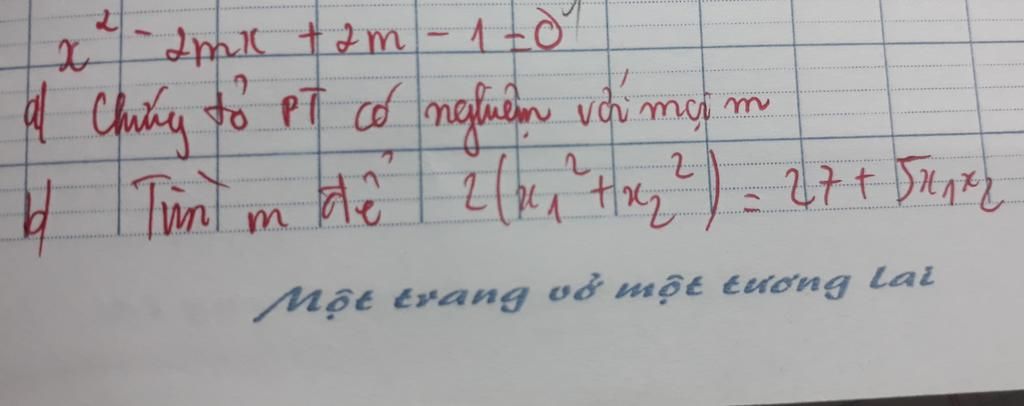 x² - 2mx + 2m - 1 = 0
a) Chứng tỏ PT có nghiệm với mọi m
b) Tìm m để 2(x₁² + x₂²) = 27 + 5x₁x₂
Một trang vở một tương lai